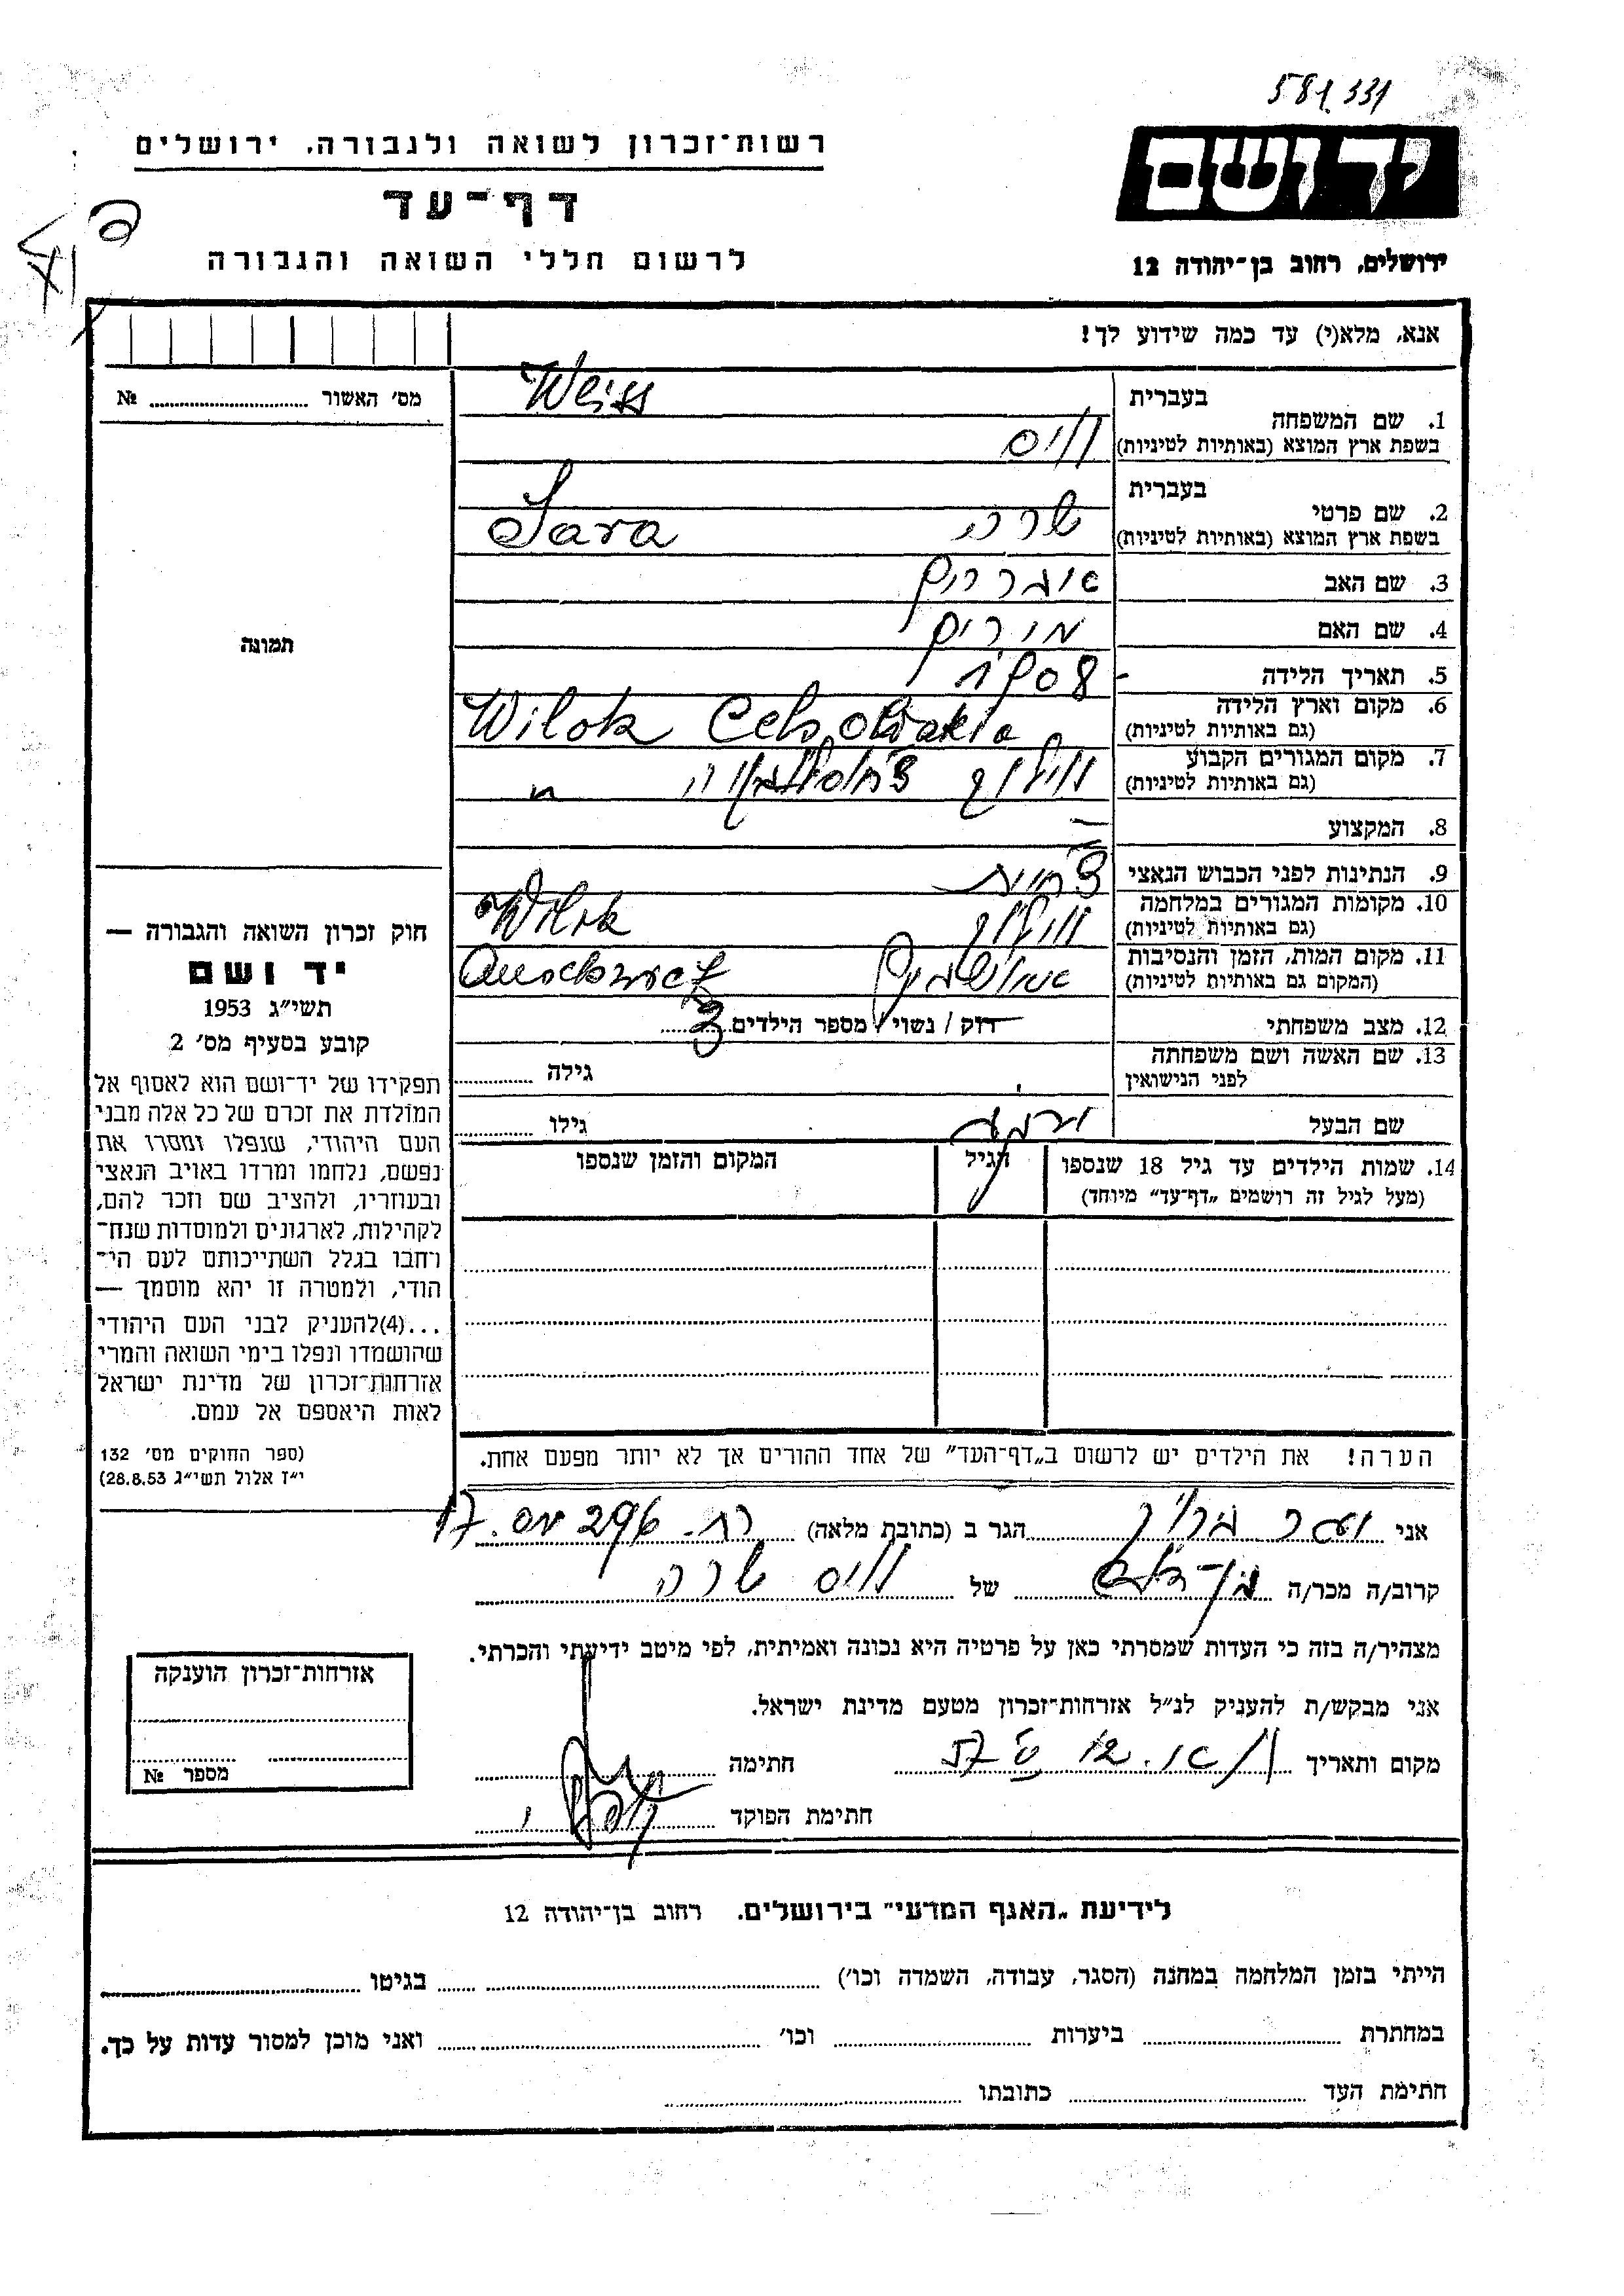 581331
רשות־זכרון לשואה ולגבורה, ירושלים
יד ושם
דף־עד
לרשום חללי השואה והגבורה
ירושלים, רחוב בן־יהודה 12
אנא, מלא(י) עד כמה שידוע לך!
מס׳ האשור № 
Weiss
בעברית
1. שם המשפחה
בשפת ארץ המוצא (באותיות לטיניות)
ווייס
בעברית
2. שם פרטי
בשפת ארץ המוצא (באותיות לטיניות)
שרה Sara
3. שם האב
4. שם האם מירים
5. תאריך הלידה
6. מקום וארץ הלידה
(גם באותיות לטיניות)
Wilok
7. מקום המגורים הקבוע
(גם באותיות לטיניות)
8. המקצוע —
9. הנתינות לפני הכבוש הנאצי
10. מקומות המגורים במלחמה
(גם באותיות לטיניות)
Wilok
11. מקום המות, הזמן והנסיבות
(המקום גם באותיות לטיניות)
12. מצב משפחתי רוק / נשוי / מספר הילדים 3
13. שם האשה ושם משפחתה
לפני הנישואין
גילה
שם הבעל גילו
14. שמות הילדים עד גיל 18 שנספו
(מעל לגיל זה רושמים „דף־עד״ מיוחד)
הגיל
המקום והזמן שנספו
הערה! את הילדים יש לרשום ב„דף־העד״ של אחד ההורים אך לא יותר מפעם אחת.
תמונה
חוק זכרון השואה והגבורה —
יד ושם
תשי״ג 1953
קובע בסעיף מס׳ 2
תפקידו של יד־ושם הוא לאסוף אל
המולדת את זכרם של כל אלה מבני
העם היהודי, שנפלו ומסרו את
נפשם, נלחמו ומרדו באויב הנאצי
ובעוזריו, ולהציב שם וזכר להם,
לקהילות, לארגונים ולמוסדות שנח־
רחבו בגלל השתייכותם לעם הי־
הודי, ולמטרה זו יהא מוסמך —
...(4)להעניק לבני העם היהודי
שהושמדו ונפלו בימי השואה והמרי
אזרחות־זכרון של מדינת ישראל
לאות היאספם אל עמם.
(ספר החוקים מס׳ 132
י״ז אלול תשי״ג 28.8.53)
אני הגר ב (כתובת מלאה)
קרוב/ה מכר/ה של ווייס שרה
מצהיר/ה בזה כי העדות שמסרתי כאן על פרטיה היא נכונה ואמיתית, לפי מיטב ידיעתי והכרתי.
אני מבקש/ת להעניק לנ״ל אזרחות־זכרון מטעם מדינת ישראל.
מקום ותאריך חתימה
חתימת הפוקד
אזרחות־זכרון הוענקה
מספר №
לידיעת „האגף המדעי״ בירושלים, רחוב בן־יהודה 12
הייתי בזמן המלחמה במחנה (הסגר, עבודה, השמדה וכו׳) בגיטו
במחתרת ביערות וכו׳ ואני מוכן למסור עדות על כך.
חתימת העד כתובתו